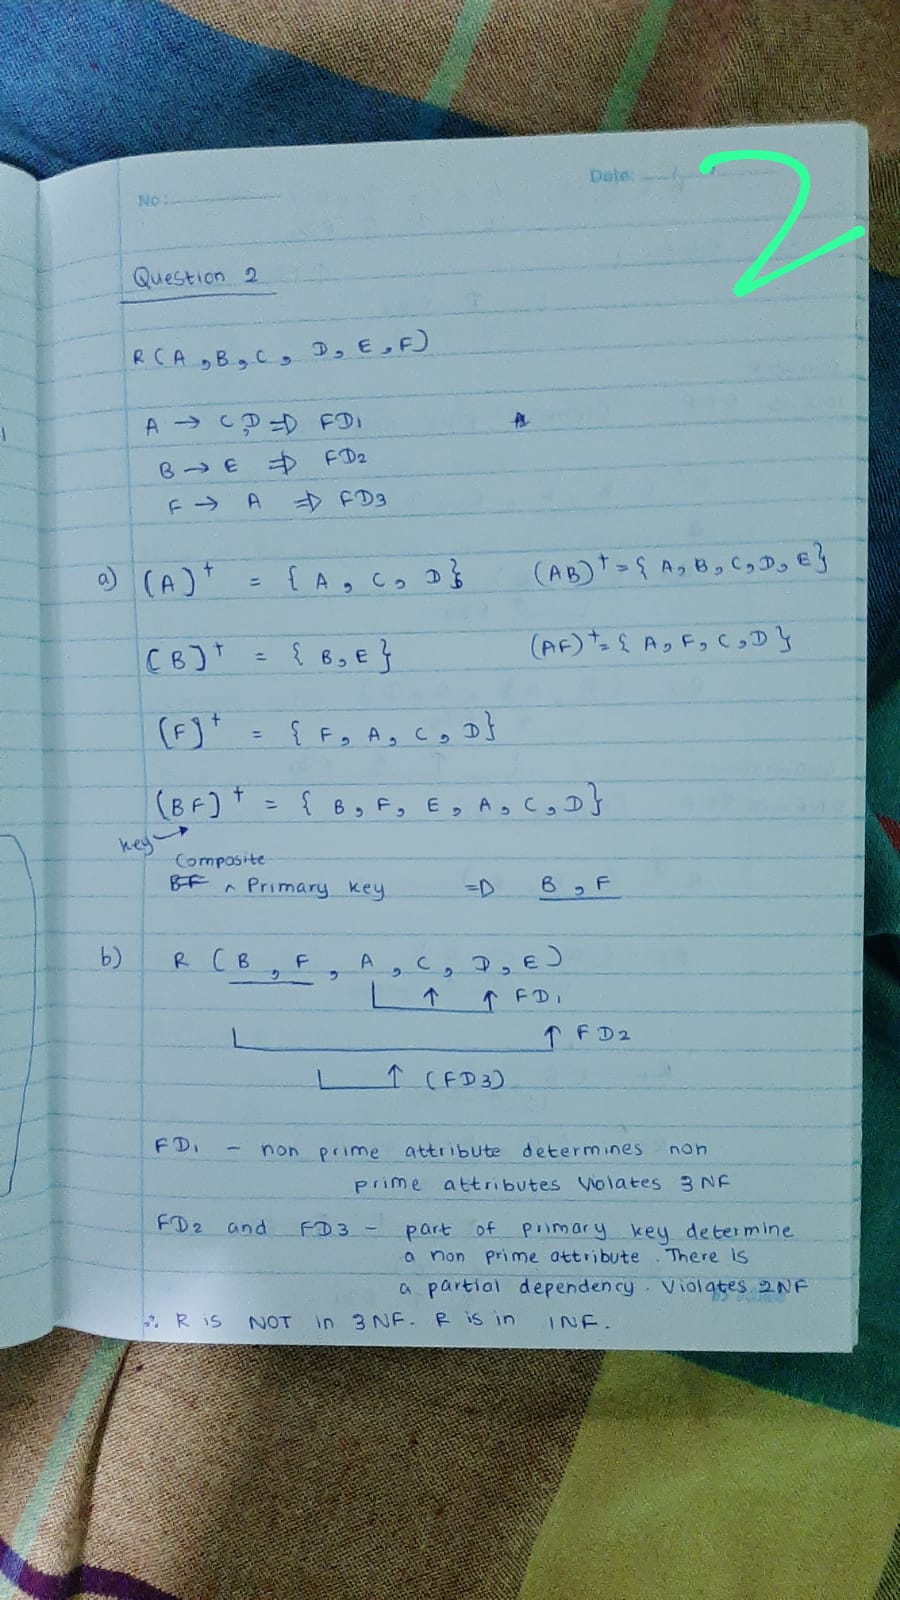 No:
Date:
2
Question 2
R(A, B, C, D, E, F)
A → C,D ⇒ FD1
B → E ⇒ FD2
F → A ⇒ FD3
a) (A)+ = { A, C, D}
(AB)+ = { A, B, C, D, E}
(B)+ = { B, E }
(AF)+ = { A, F, C, D }
(F)+ = { F, A, C, D}
(BF)+ = { B, F, E, A, C, D}
key →
Composite
BF ^ Primary key ⇒ B, F
b) R (B, F, A, C, D, E)
↑ ↑ FD1
↑ FD2
↑ (FD3)
FD1 - non prime attribute determines non
prime attributes violates 3NF
FD2 and FD3 - part of primary key determine
a non prime attribute. There is
a partial dependency. Violates 2NF
∴ R is NOT in 3NF. R is in 1NF.